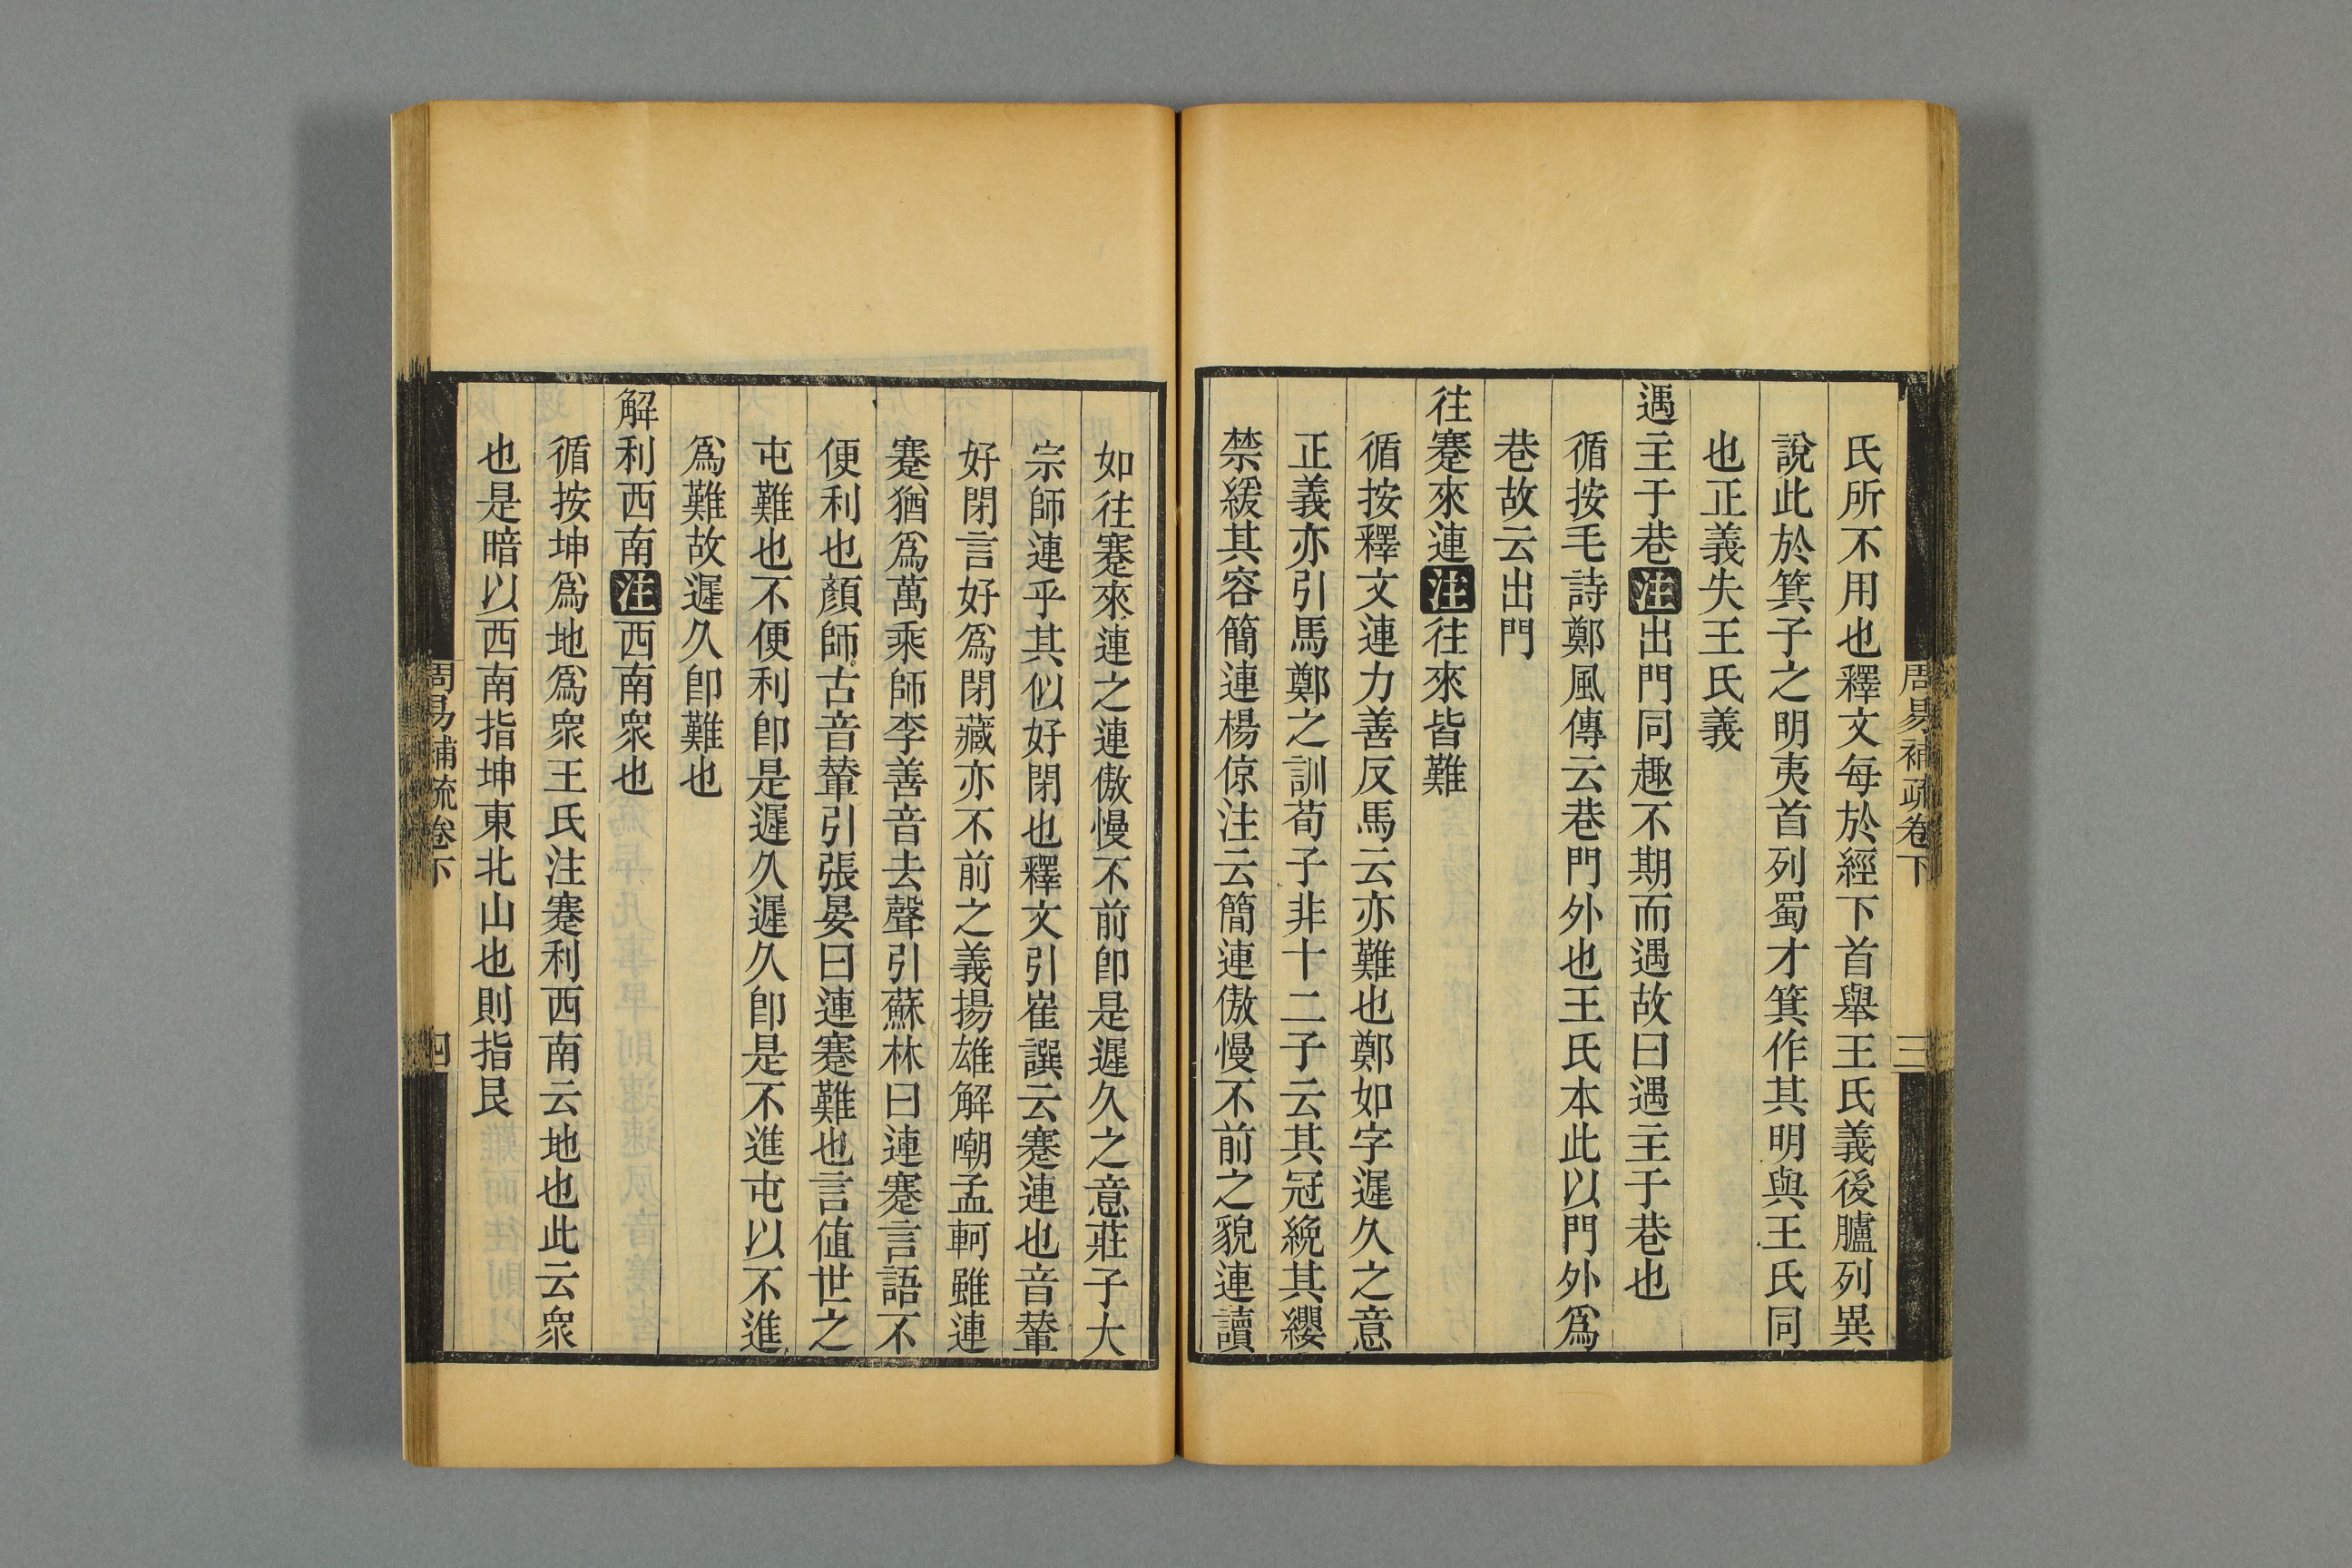 周易補疏卷下
三
氏所不用也釋文每於經下首舉王氏義後臚列異
說此於箕子之明夷首列蜀才箕作其明與王氏同
也正義失王氏義
遇主于巷注出門同趣不期而遇故曰遇主于巷也
循按毛詩鄭風傳云巷門外也王氏本此以門外爲
巷故云出門
往蹇來連注往來皆難
循按釋文連力善反馬云亦難也鄭如字遲久之意
正義亦引馬鄭之訓荀子非十二子云其冠絻其纓
禁緩其容簡連楊倞注云簡連傲慢不前之貌連讀
如往蹇來連之連傲慢不前卽是遲久之意莊子大
宗師連乎其似好閉也釋文引崔譔云蹇連也音輦
好閉言好爲閉藏亦不前之義揚雄解嘲孟軻雖連
蹇猶爲萬乘師李善音去聲引蘇林曰連蹇言語不
便利也顏師古音輦引張晏曰連蹇難也言値世之
屯難也不便利卽是遲久遲久卽是不進屯以不進
爲難故遲久卽難也
解利西南注西南衆也
循按坤爲地爲衆王氏注蹇利西南云地也此云衆
也是暗以西南指坤東北山也則指艮
周易補疏卷下
四